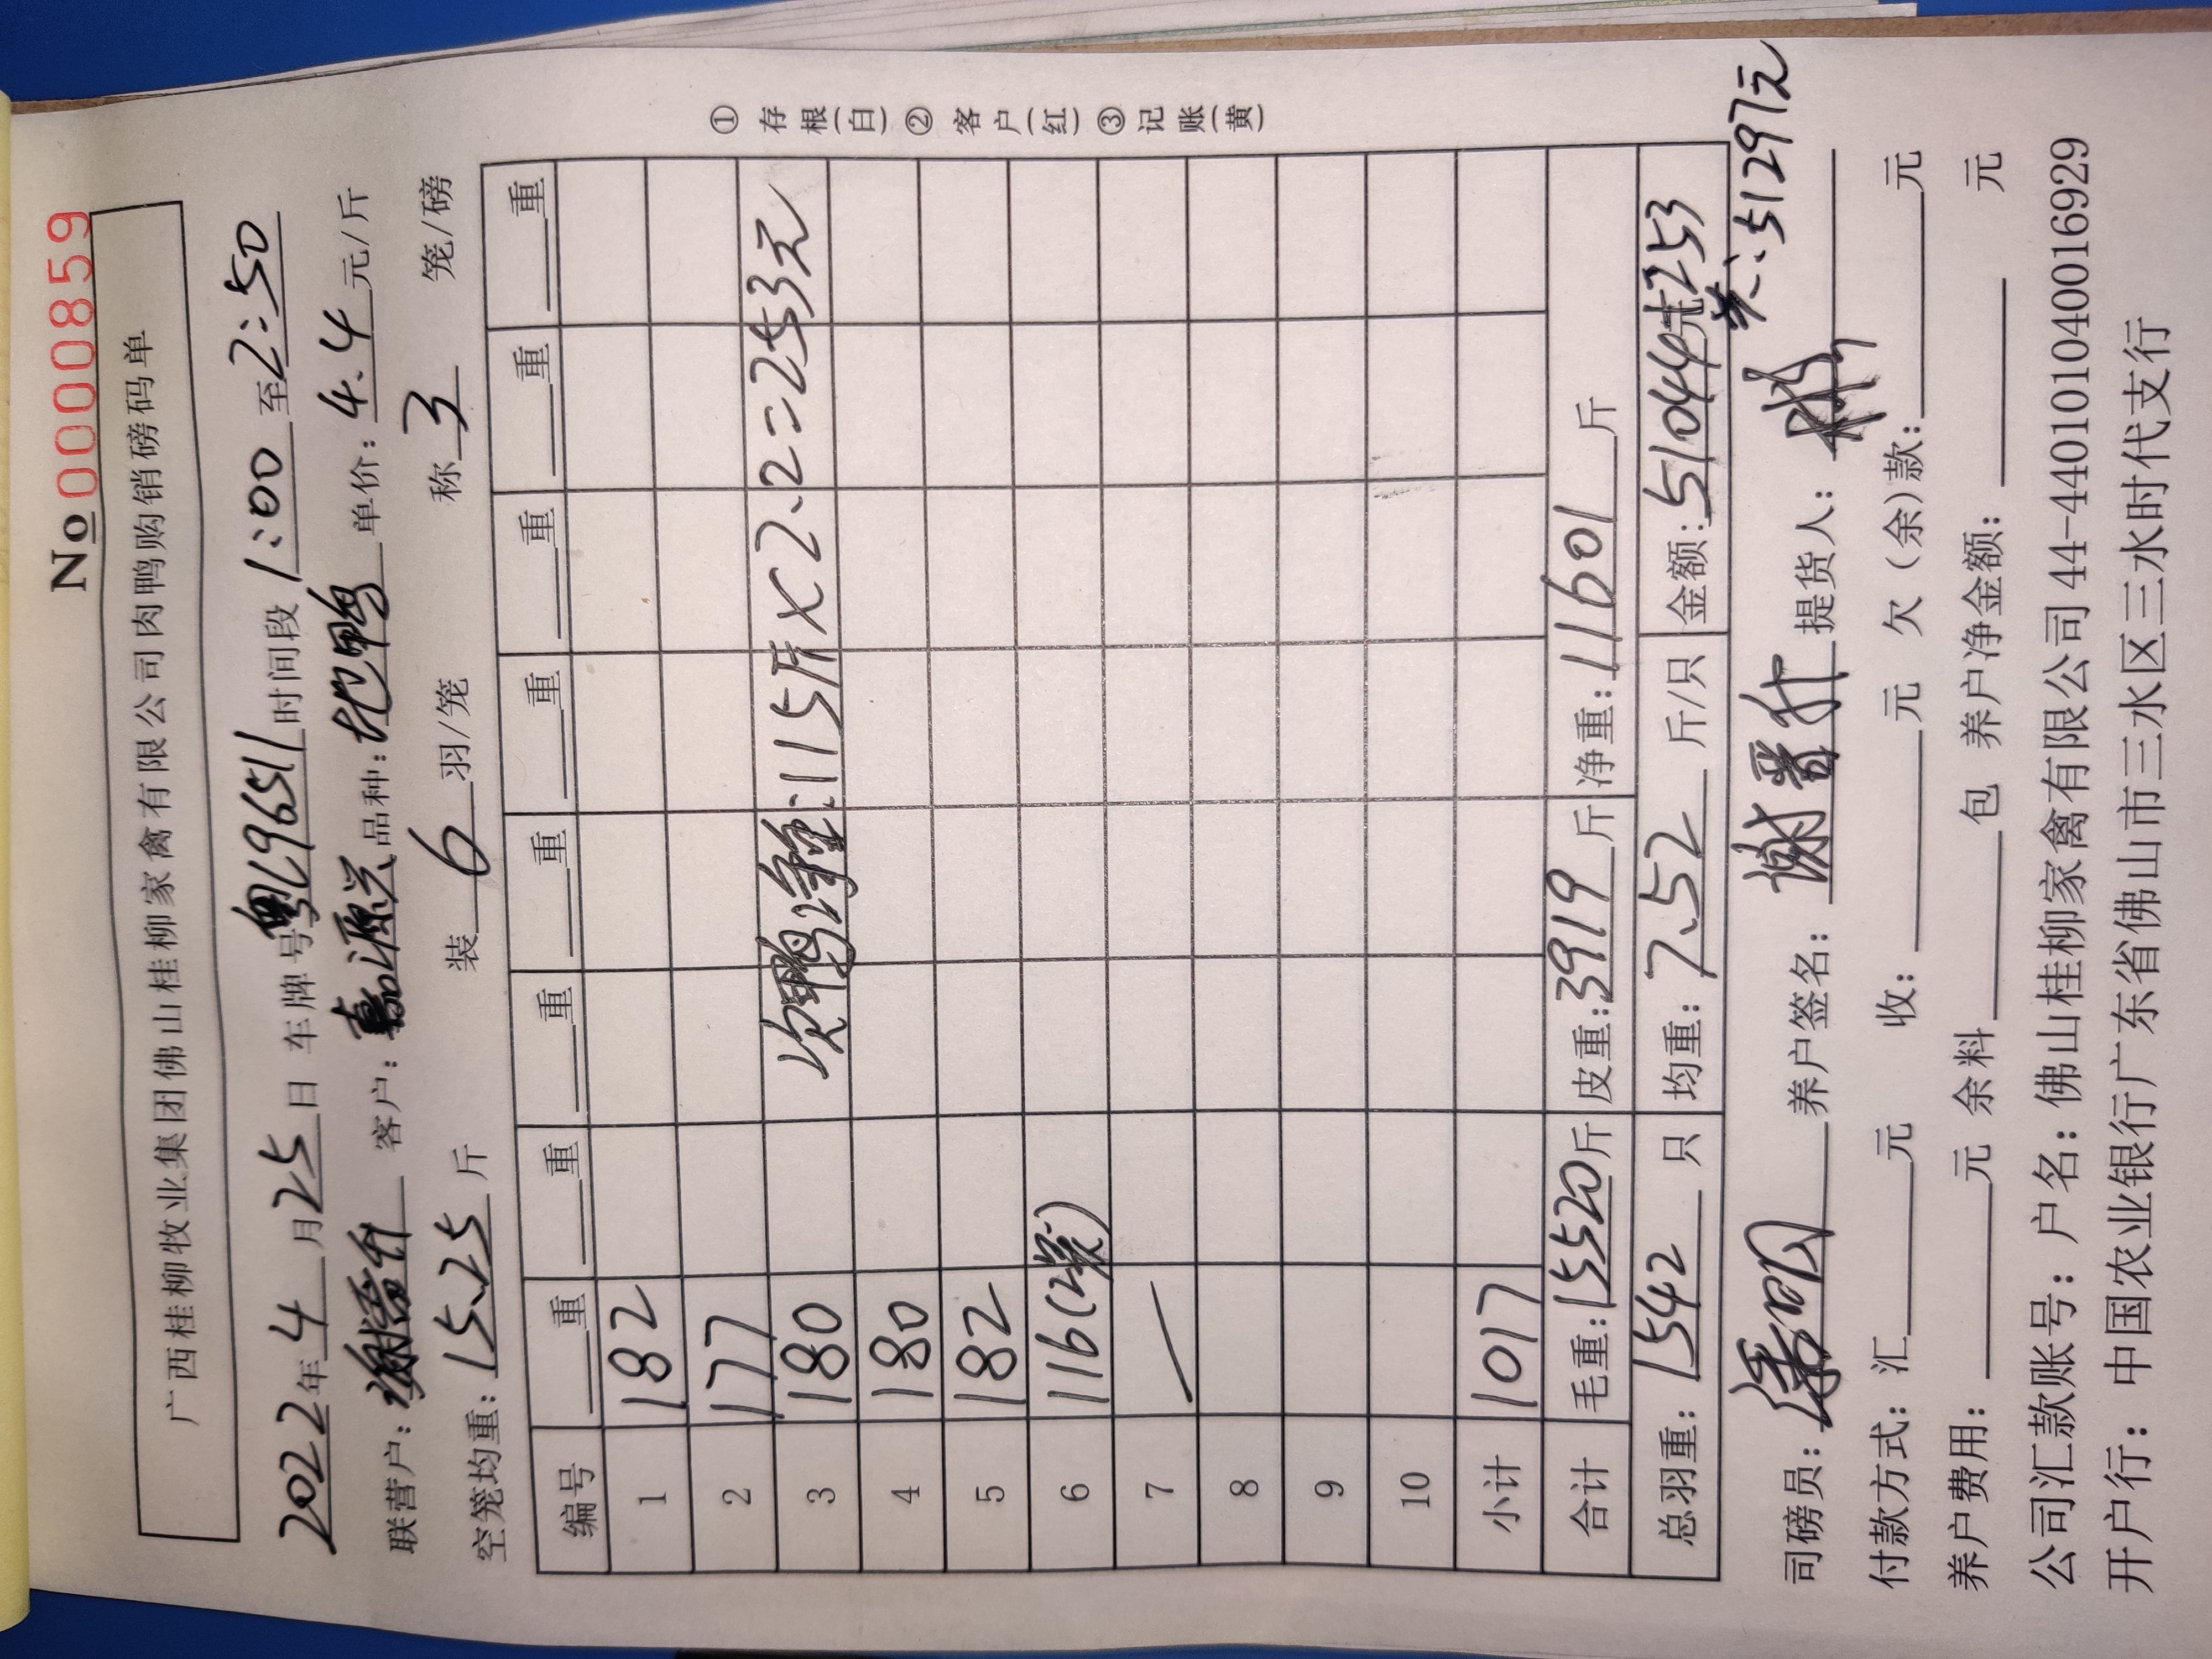 No 0000859
广西桂柳牧业集团佛山桂柳家禽有限公司肉鸭购销磅码单
2022年4月25日 车牌号粤C96511时间段1:00至2:50
联营户: 客户:嘉源兴品种: 鸭 单价:4.4元/斤
空笼均重:15.25斤 装6羽/笼 称3笼/磅
编号 重 重 重 重 重 重 重 重
1 182
2 177
3 180 次鸭净重:115斤×2.2=253元
4 180
5 182
6 116(2笼)
7 /
8
9
10
小计 1017
合计 毛重:15520斤 皮重:3919斤 净重:11601斤
总羽重:1542只 均重:7.52斤/只 金额:51044元+253
共:51297元
司磅员: 养户签名: 提货人:
付款方式:汇 元 收: 元 欠(余)款: 元
养户费用: 元 余料 包 养户净金额: 元
公司汇款账号:户名:佛山桂柳家禽有限公司44-440101040016929
开户行:中国农业银行广东省佛山市三水区三水时代支行
①存根(白)②客户(红)③记账(黄)